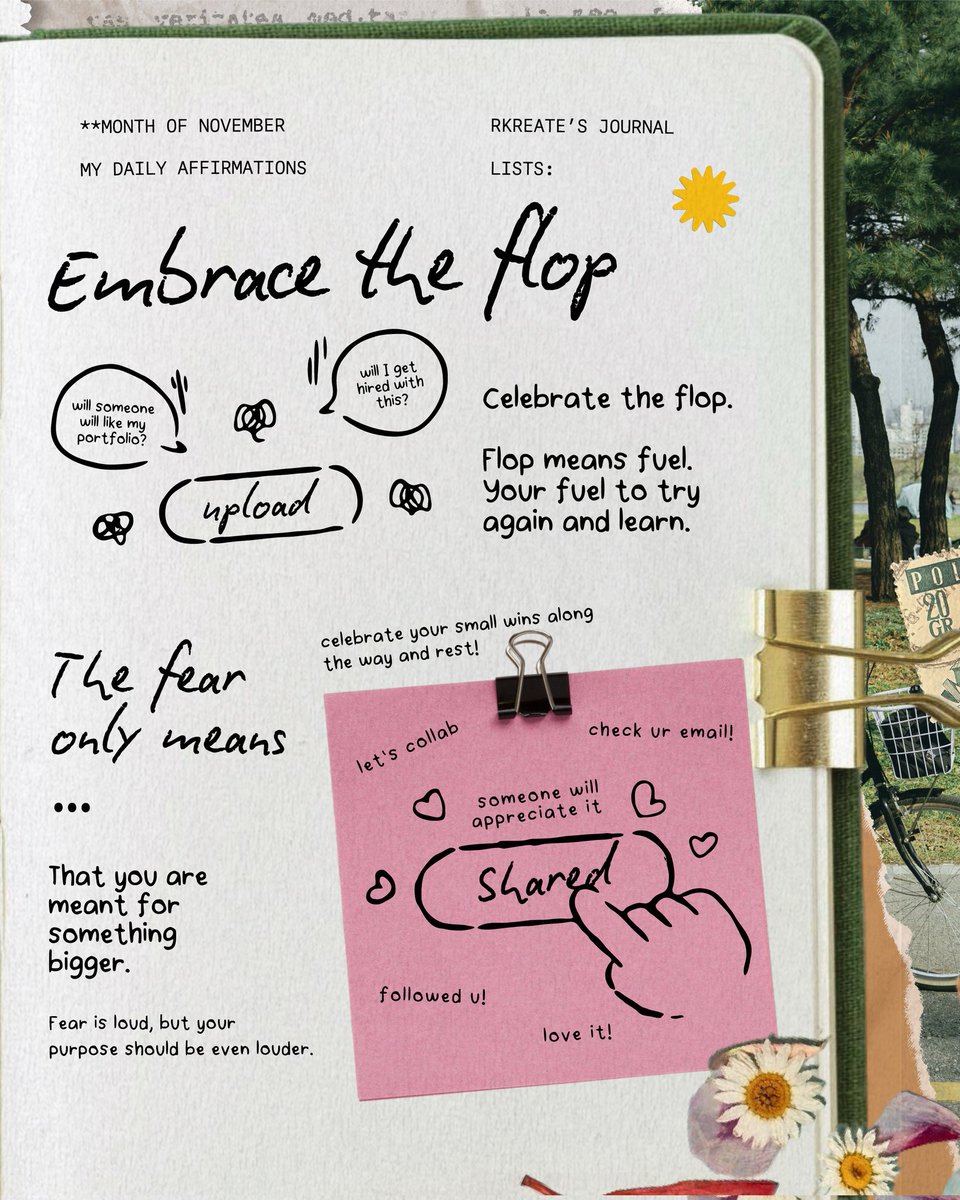 **MONTH OF NOVEMBER
RKREATE’S JOURNAL
MY DAILY AFFIRMATIONS
LISTS:
Embrace the flop
will someone
will like my
portfolio?
will I get
hired with
this?
upload
Celebrate the flop.
Flop means fuel.
Your fuel to try
again and learn.
celebrate your small wins along
the way and rest!
The fear
only means
...
That you are
meant for
something
bigger.
Fear is loud, but your
purpose should be even louder.
let's collab
check ur email!
someone will
appreciate it
Shared
followed u!
love it!
20
GR